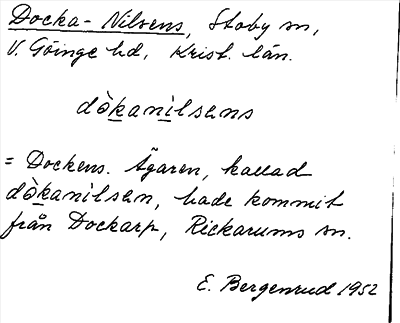 Docka-Nilsens, Stoby sn,
V. Göinge hd, Krist. län.
dòkanìlsens
= Dockens. Ägaren, kallad
dòkanìlsen, hade kommit
från Dockarp, Rickarums sn.
E. Bergenrud 1952